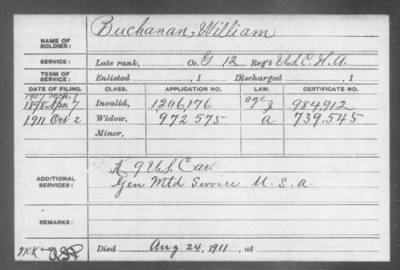 NAME OF SOLDIER: Buchanan, William
SERVICE: Late rank, Co. G 12 Reg't U.S.C.H.A.
TERM OF SERVICE: Enlisted , 1 Discharged , 1
DATE OF FILING. CLASS. APPLICATION NO. LAW. CERTIFICATE NO.
1907
1898 Apr 7 Invalid, 1206,176 age g 984,912
1911 Oct 2 Widow, 972,575 a 739,545
Minor,
ADDITIONAL SERVICES: K 9 U.S. Cav.
Gen Mtd Service U.S.A.
REMARKS:
Died Aug 24, 1911, at